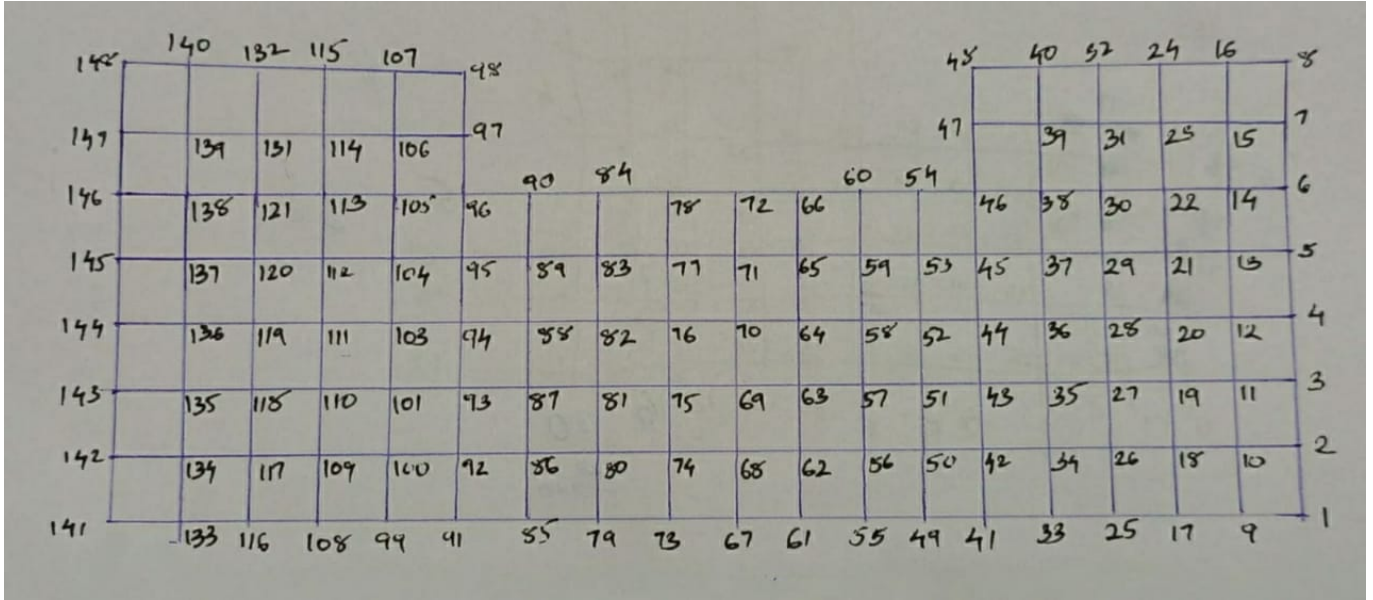 148 140 132 115 107 98 48 40 32 24 16 8
147 139 131 114 106 97 47 39 31 23 15 7
90 84 60 54
146 138 121 113 105 96 78 72 66 46 38 30 22 14 6
145 137 120 112 104 95 89 83 77 71 65 59 53 45 37 29 21 13 5
144 136 119 111 103 94 88 82 76 70 64 58 52 44 36 28 20 12 4
143 135 118 110 101 93 87 81 75 69 63 57 51 43 35 27 19 11 3
142 134 117 109 100 92 86 80 74 68 62 56 50 42 34 26 18 10 2
141 133 116 108 99 91 85 79 73 67 61 55 49 41 33 25 17 9 1